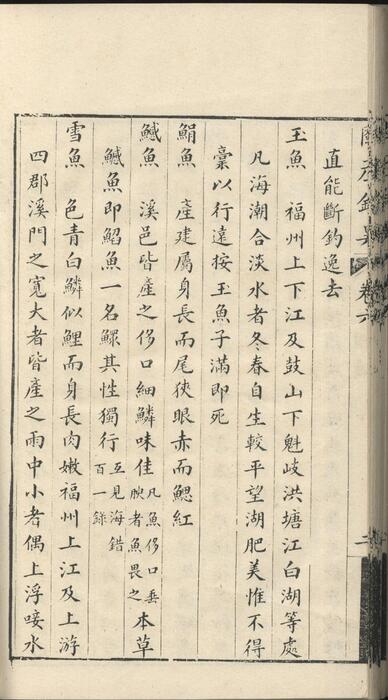 直能斷釣逸去
玉魚　福州上下江及鼓山下魁岐洪塘江白湖等處
凡海潮合淡水者冬春自生較平望湖肥美惟不得
藁以行遠按玉魚子滿即死
鮹魚　產建屬身長而尾狹眼赤而鰓紅
鰔魚　溪邑皆產之侈口細鱗味佳凡魚侈口垂腴者魚畏之本草
鰔魚即鰌魚一名鰥其性獨行互見海錯百一錄
雪魚　色青白鱗似鯉而身長肉嫩福州上江及上游
四郡溪門之寬大者皆產之雨中小者偶上浮唼水